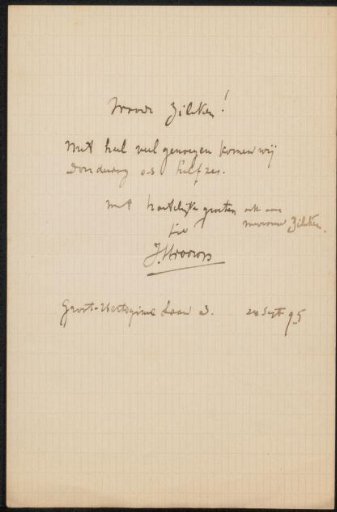 Zilcken!
Met heel veel genoegen komen wij
Donderdag a.s. half zes.
met hartelijke groeten ook aan
mevrouw Zilcken.
J. Toorop
Groot-Hertoginne Laan 3. Sept 95